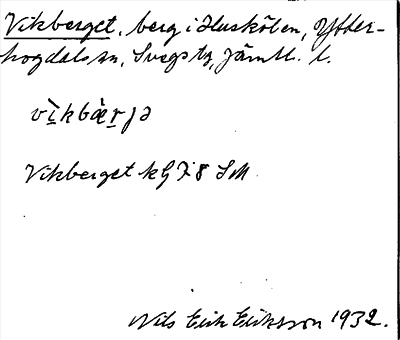 Vikberget, berg i Huskölen, Ytter-
hogdals sn, Svegs tg, Jämtl. l.
vìkbæ̀rjə
Vikberget kG 7:8 SM
Nils Erik Eriksson 1932.